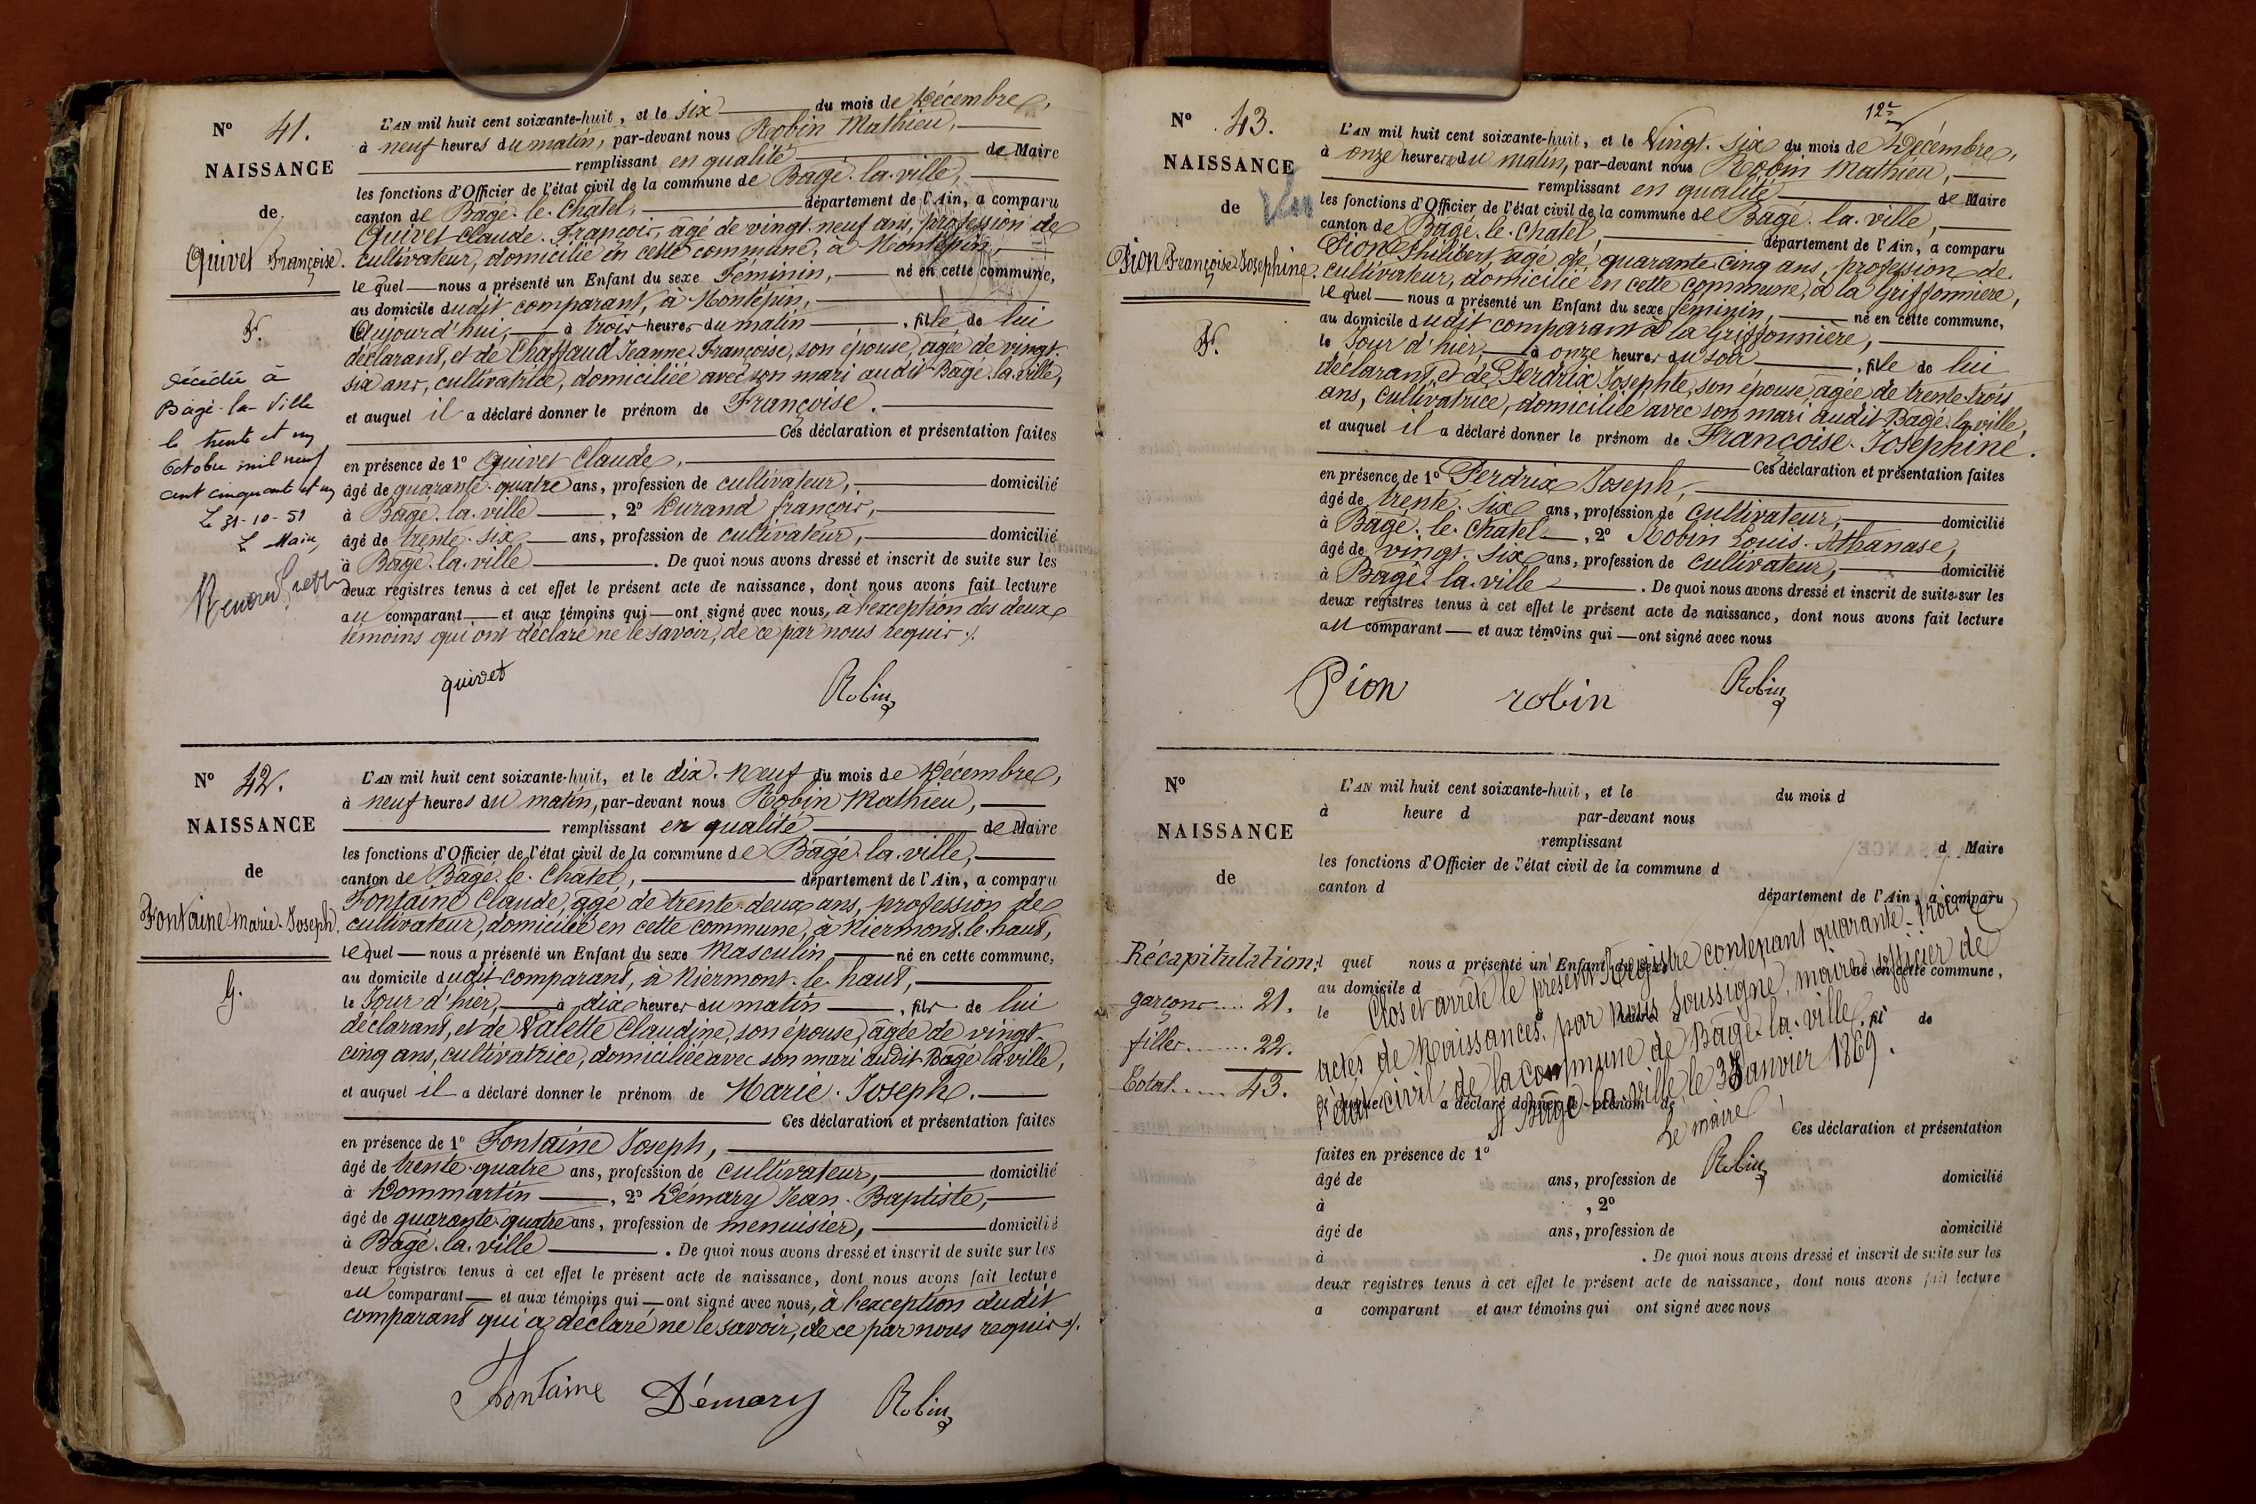 N° 41.
NAISSANCE
de
Quivet Françoise.
F.
Décédée à
Bâgé-la-Ville
le trente et un
Octobre mil neuf
cent cinquante et un
Le 31-10-51
Le Maire,
L'AN mil huit cent soixante-huit, et le six du mois de Décembre,
à neuf heures du matin, par-devant nous Robin Mathieu,
remplissant en qualité de Maire
les fonctions d'Officier de l'état civil de la commune de Bâgé-la-ville,
canton de Bâgé-le-Chatel, département de l'Ain, a comparu
Quivet Claude-François, âgé de vingt-neuf ans, profession de
cultivateur, domicilié en cette commune, à Montépin,
lequel nous a présenté un Enfant du sexe Féminin, né en cette commune,
au domicile dudit comparant, à Montépin,
Aujourd'hui, à trois heures du matin, fille de lui
déclarant, et de Chaffaud Jeanne-Françoise, son épouse, âgée de vingt-
six ans, cultivatrice, domiciliée avec son mari audit Bâgé-la-ville,
et auquel il a déclaré donner le prénom de Françoise.
Ces déclaration et présentation faites
en présence de 1° Quivet Claude,
âgé de quarante-quatre ans, profession de cultivateur, domicilié
à Bâgé-la-ville, 2° Durand françois,
âgé de trente-six ans, profession de cultivateur, domicilié
à Bâgé-la-ville. De quoi nous avons dressé et inscrit de suite sur les
deux registres tenus à cet effet le présent acte de naissance, dont nous avons fait lecture
au comparant et aux témoins qui ont signé avec nous, à l'exception des deux
témoins qui ont déclaré ne le savoir, de ce par nous requis ./.
quivet Robin
N° 42.
NAISSANCE
de
Fontaine Marie-Joseph.
G.
L'AN mil huit cent soixante-huit, et le dix-Neuf du mois de Décembre,
à neuf heures du matin, par-devant nous Robin Mathieu,
remplissant en qualité de Maire
les fonctions d'Officier de l'état civil de la commune de Bâgé-la-ville,
canton de Bâgé-le-Chatel, département de l'Ain, a comparu
Fontaine Claude, âgé de trente-deux ans, profession de
cultivateur, domicilié en cette commune, à Niermont-le-haut,
lequel nous a présenté un Enfant du sexe Masculin, né en cette commune,
au domicile dudit comparant, à Niermont-le-haut,
le Jour d'hier, à dix heures du matin, fils de lui
déclarant, et de Valette Claudine, son épouse, âgée de vingt-
cinq ans, cultivatrice, domiciliée avec son mari audit Bâgé-la-ville,
et auquel il a déclaré donner le prénom de Marie-Joseph.
Ces déclaration et présentation faites
en présence de 1° Fontaine Joseph,
âgé de trente-quatre ans, profession de cultivateur, domicilié
à Dommartin, 2° Démary Jean-Baptiste,
âgé de quarante-quatre ans, profession de menuisier, domicilié
à Bâgé-la-ville. De quoi nous avons dressé et inscrit de suite sur les
deux registres tenus à cet effet le présent acte de naissance, dont nous avons fait lecture
au comparant et aux témoins qui ont signé avec nous, à l'exception dudit
comparant qui a déclaré ne le savoir, de ce par nous requis ./.
Fontaine Démary Robin
N° 43.
NAISSANCE
de
Pion Françoise-Josephine.
F.
12e
L'AN mil huit cent soixante-huit, et le Vingt-six du mois de Décembre,
à onze heures du matin, par-devant nous Robin Mathieu,
remplissant en qualité de Maire
les fonctions d'Officier de l'état civil de la commune de Bâgé-la-ville,
canton de Bâgé-le-Chatel, département de l'Ain, a comparu
Pion Philibert, âgé de quarante-cinq ans, profession de
cultivateur, domicilié en cette commune, à la Griffonnière,
lequel nous a présenté un Enfant du sexe féminin, né en cette commune,
au domicile dudit comparant à la Griffonnière,
le Jour d'hier, à onze heures du soir, fille de lui
déclarant, et de Perdrix Josephte, son épouse, âgée de trente-trois
ans, cultivatrice, domiciliée avec son mari audit Bâgé-la-ville,
et auquel il a déclaré donner le prénom de Françoise-Josephine.
Ces déclaration et présentation faites
en présence de 1° Perdrix Joseph,
âgé de trente-six ans, profession de cultivateur, domicilié
à Bâgé-le-Chatel, 2° Robin Louis-Athanase,
âgé de vingt-six ans, profession de cultivateur, domicilié
à Bâgé-la-ville. De quoi nous avons dressé et inscrit de suite sur les
deux registres tenus à cet effet le présent acte de naissance, dont nous avons fait lecture
au comparant et aux témoins qui ont signé avec nous
Pion robin Robin
N°
NAISSANCE
de
Récapitulation:
garçons.... 21.
filles........ 22.
Total..... 43.
L'AN mil huit cent soixante-huit, et le du mois d
à heure d par-devant nous
remplissant d Maire
les fonctions d'Officier de l'état civil de la commune d
canton d département de l'Ain, a comparu
l quel nous a présenté un Enfant du sexe né en cette commune,
au domicile d
le à heure d fil de
Clos et arrêté le présent Registre contenant quarante-trois
actes de Naissances, par Nous soussigné, maire, officier de
l'état civil de la commune de Bâgé-la-ville.
A Bâgé-la-ville le 3 Janvier 1869.
Le maire,
Robin
et auquel a déclaré donner le prénom de
Ces déclaration et présentation
faites en présence de 1°
âgé de ans, profession de domicilié
à , 2°
âgé de ans, profession de domicilié
à . De quoi nous avons dressé et inscrit de suite sur les
deux registres tenus à cet effet le présent acte de naissance, dont nous avons fait lecture
a comparant et aux témoins qui ont signé avec nous